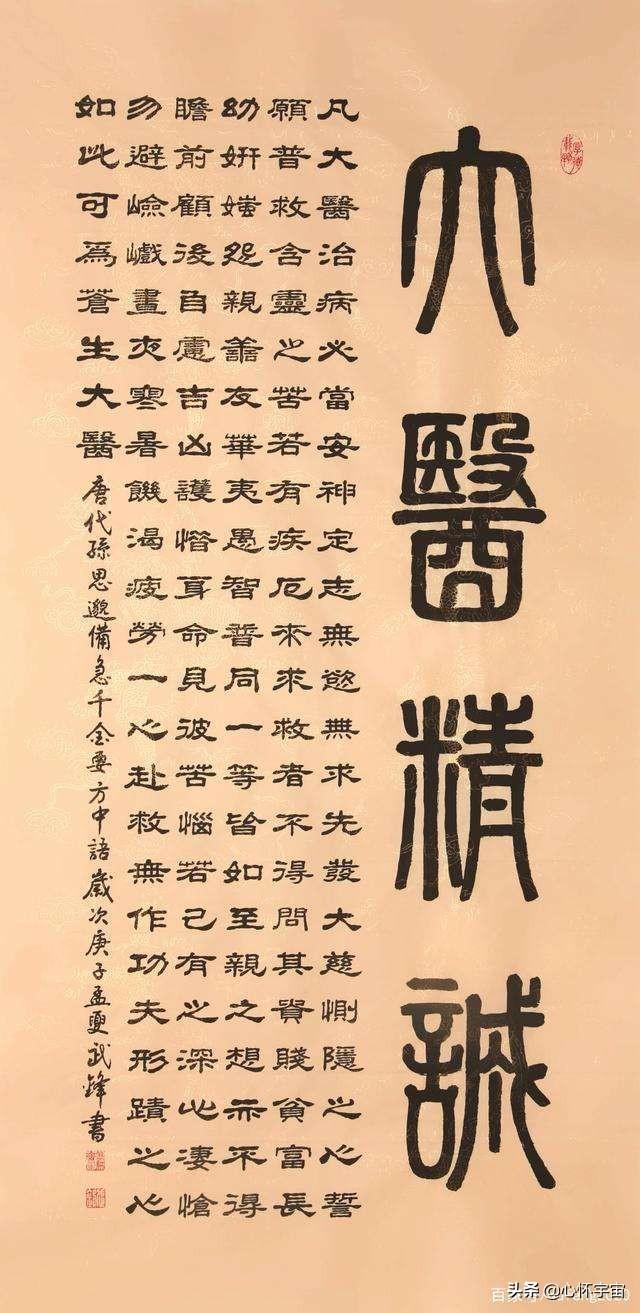 大醫精誠
凡大醫治病必當安神定志無慾無求先發大慈惻隱之心誓
願普救含靈之苦若有疾厄來求救者不得問其貴賤貧富長
幼妍媸怨親善友華夷愚智普同一等皆如至親之想亦不得
瞻前顧後自慮吉凶護惜身命見彼苦惱若己有之深心凄愴
勿避嶮巇晝夜寒暑饑渴疲勞一心赴救無作功夫形蹟之心
如此可爲蒼生大醫 唐代孫思邈備急千金要方中語歲次庚子孟夏武鋒書
头条 @心怀宇宙